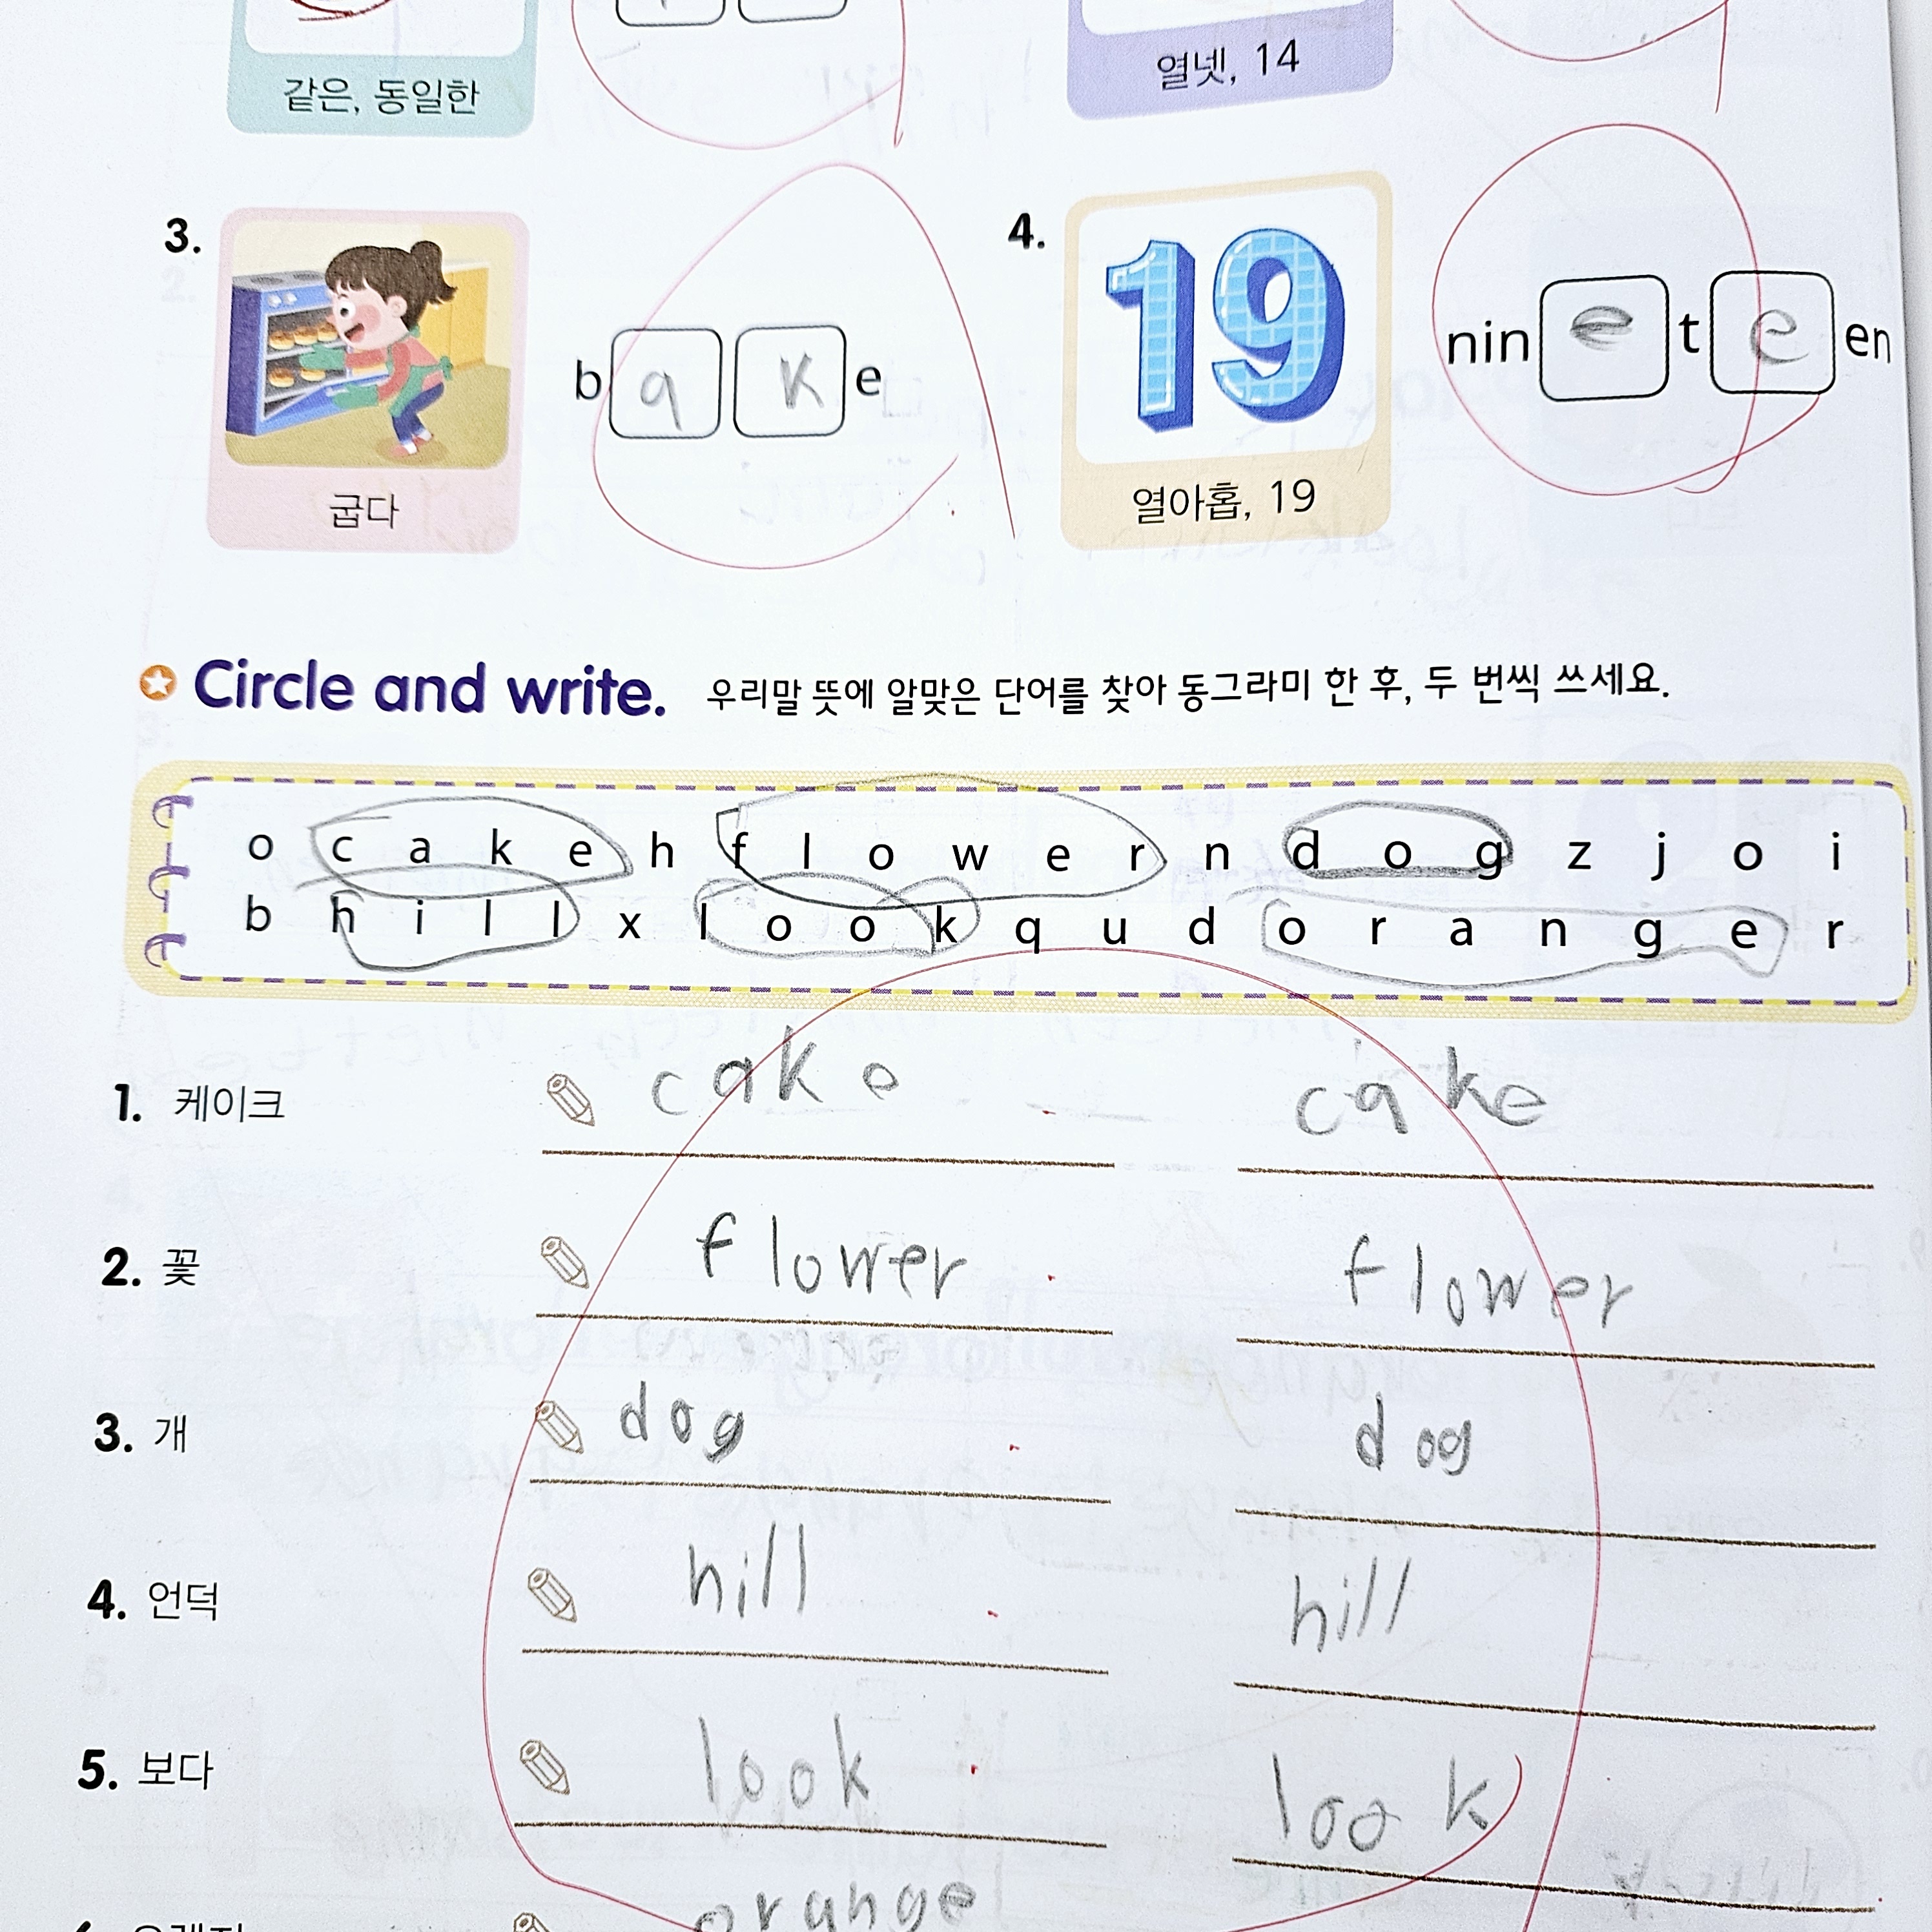 같은, 동일한
열넷, 14
3.
굽다
b a k e
4.
19
열아홉, 19
nin e t e en
Circle and write. 우리말 뜻에 알맞은 단어를 찾아 동그라미 한 후, 두 번씩 쓰세요.
o c a k e h f l o w e r n d o g z j o i
b h i l l x l o o k q u d o r a n g e r
1. 케이크 cake cake
2. 꽃 flower flower
3. 개 dog dog
4. 언덕 hill hill
5. 보다 look look
orange